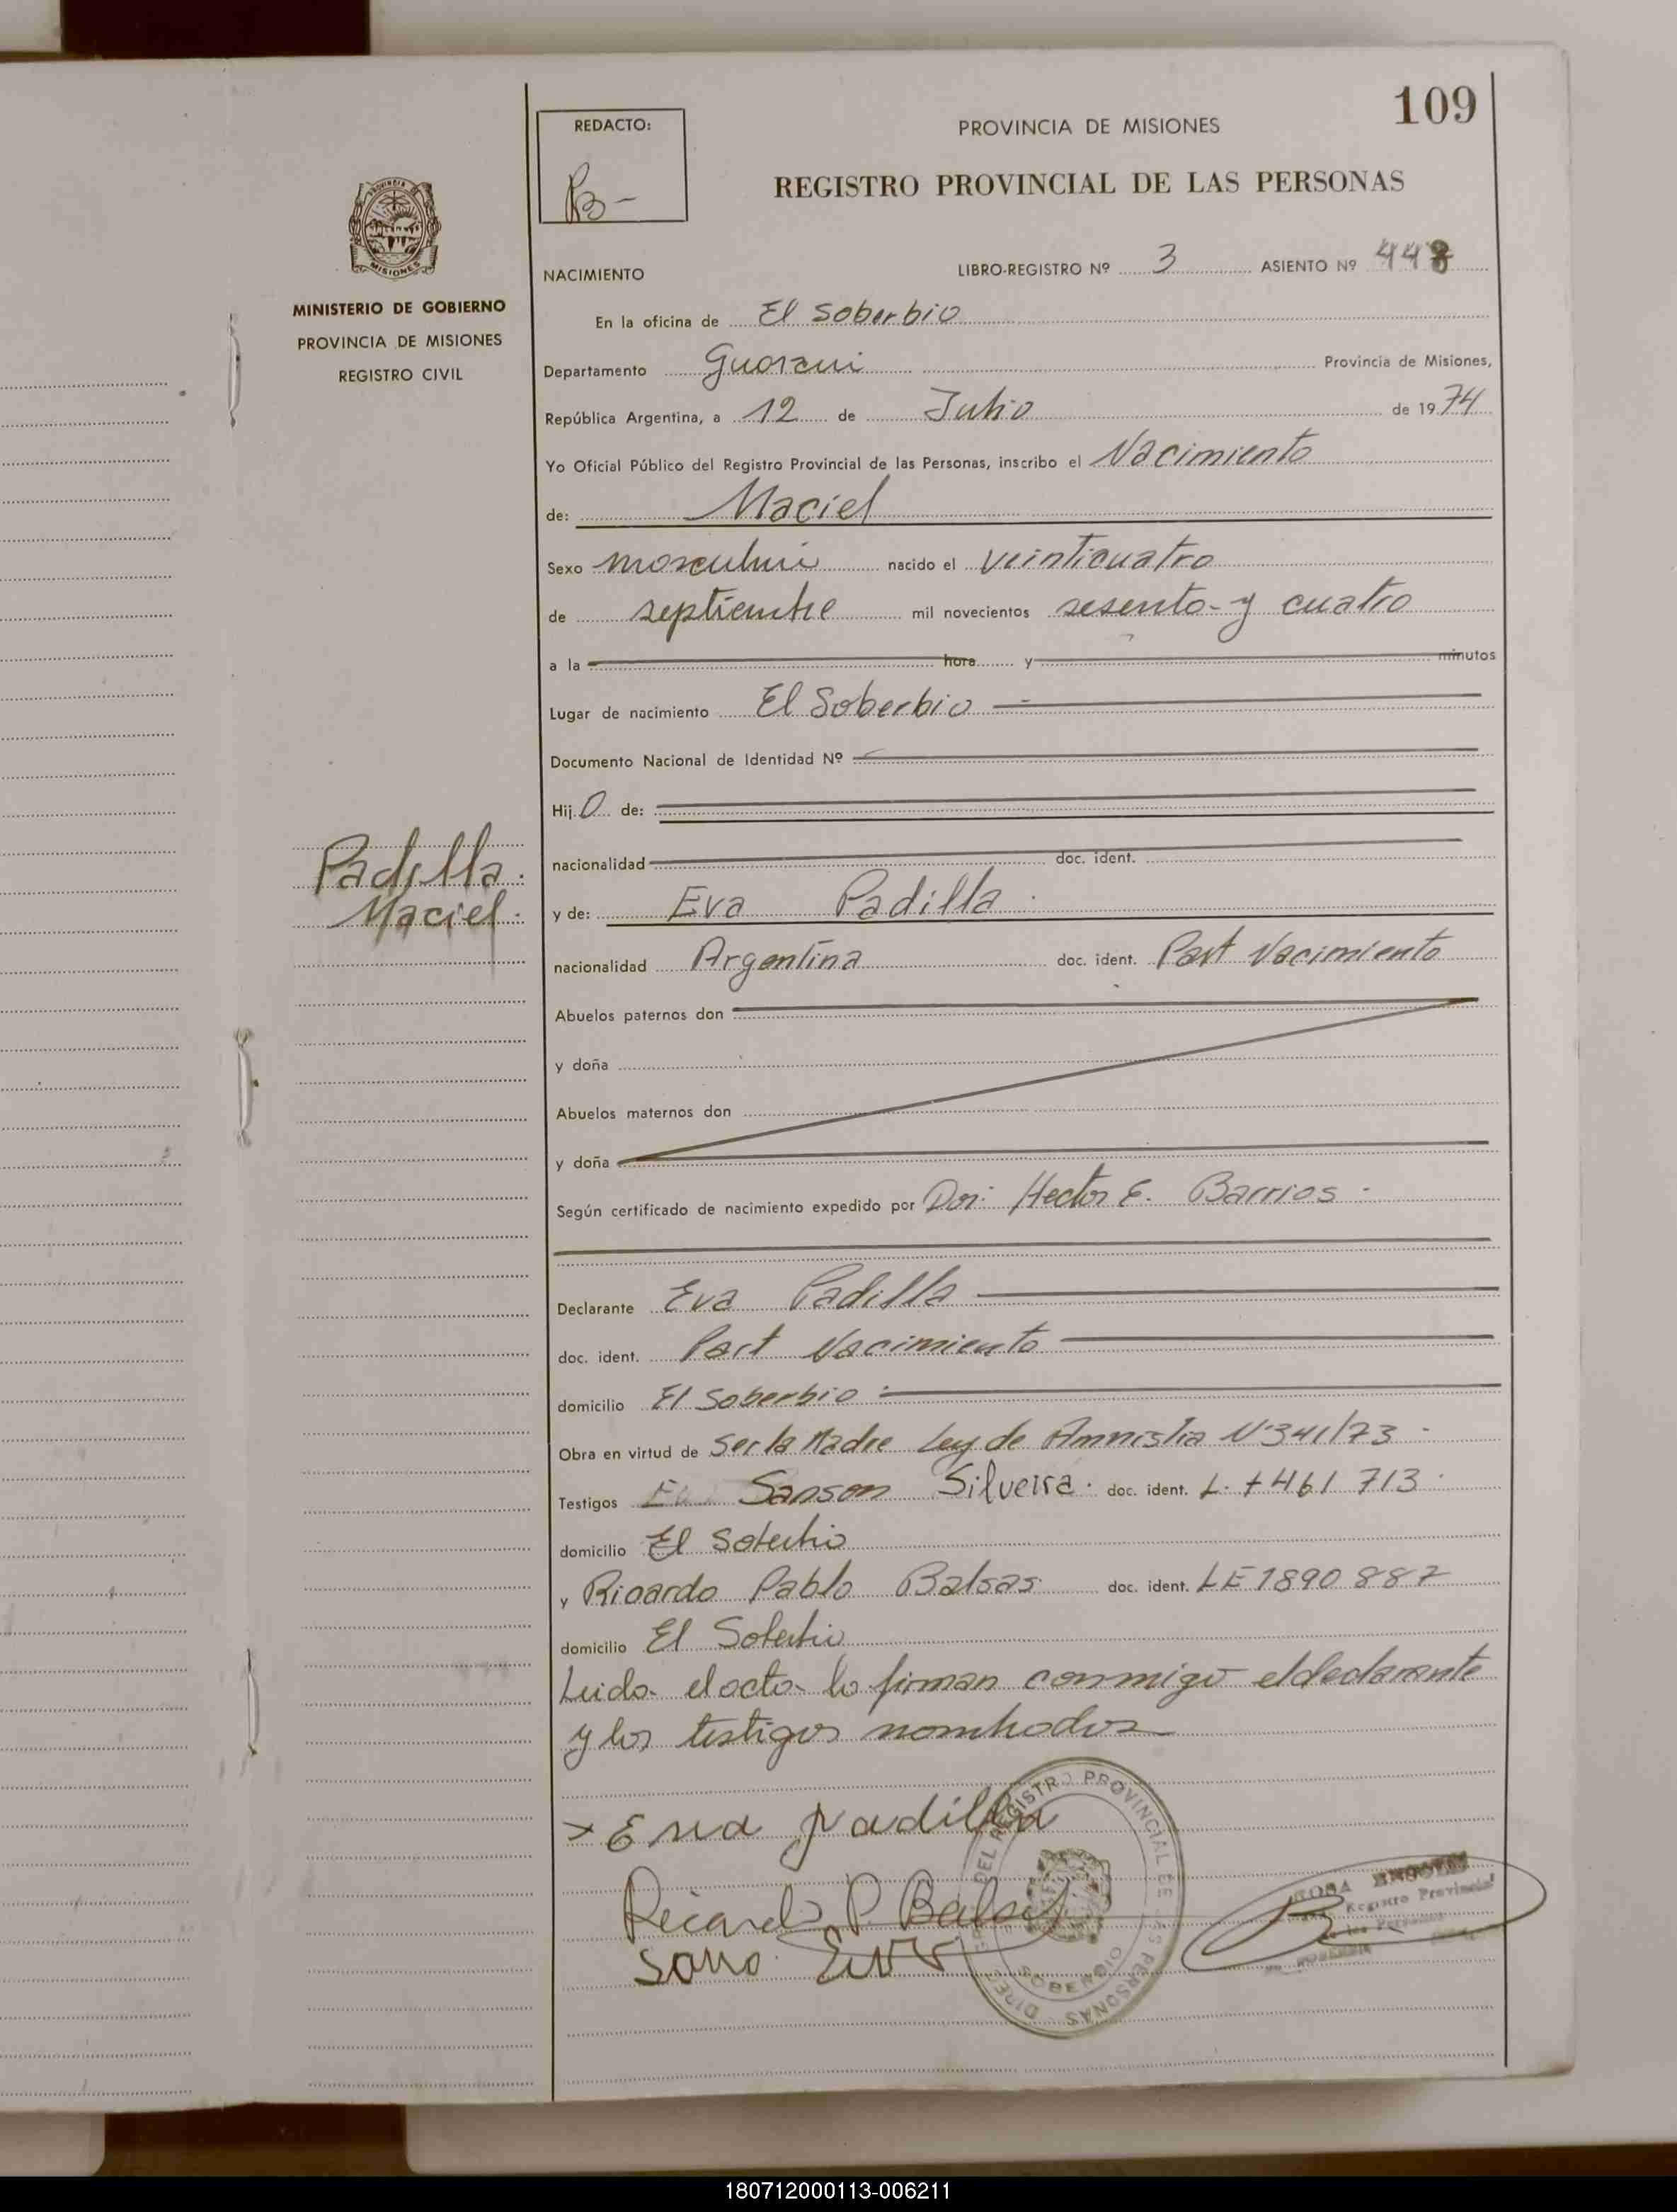 109
REDACTO:
PROVINCIA DE MISIONES
REGISTRO PROVINCIAL DE LAS PERSONAS
MISIONES
MINISTERIO DE GOBIERNO
PROVINCIA DE MISIONES
REGISTRO CIVIL
NACIMIENTO LIBRO-REGISTRO Nº 3 ASIENTO Nº 448
En la oficina de El Soberbio
Departamento Guarani Provincia de Misiones,
República Argentina, a 12 de Julio de 1974
Yo Oficial Público del Registro Provincial de las Personas, inscribo el Nacimiento
de: Maciel
Sexo masculini nacido el veinticuatro
de septiembre mil novecientos sesenta y cuatro
a la hora y minutos
Lugar de nacimiento El Soberbio
Documento Nacional de Identidad Nº
Hij O de:
Padilla.
Maciel.
nacionalidad doc. ident.
y de: Eva Padilla.
nacionalidad Argentina doc. ident. Part Nacimiento
Abuelos paternos don
y doña
Abuelos maternos don
y doña
Según certificado de nacimiento expedido por Dor: Hector E. Barrios.
Declarante Eva Padilla
doc. ident. Part Nacimiento
domicilio El Soberbio
Obra en virtud de Ser la Madre Ley de Amnistia Nº 341/73
Testigos Sanson Silveira. doc. ident. 461 713
domicilio El Soberbio
y Ricardo Pablo Balsas doc. ident. LE 1890 887
domicilio El Soberbio
Leida el acta lo firman conmigo el declarante
y los testigos nombrados
Eva padilla
DIREC. GRAL. DEL REGISTRO PROVINCIAL DE LAS PERSONAS
SOBERBIO
Ricardo P. Balsas
ROSA
Registro Provincial
de las Personas
180712000113-006211